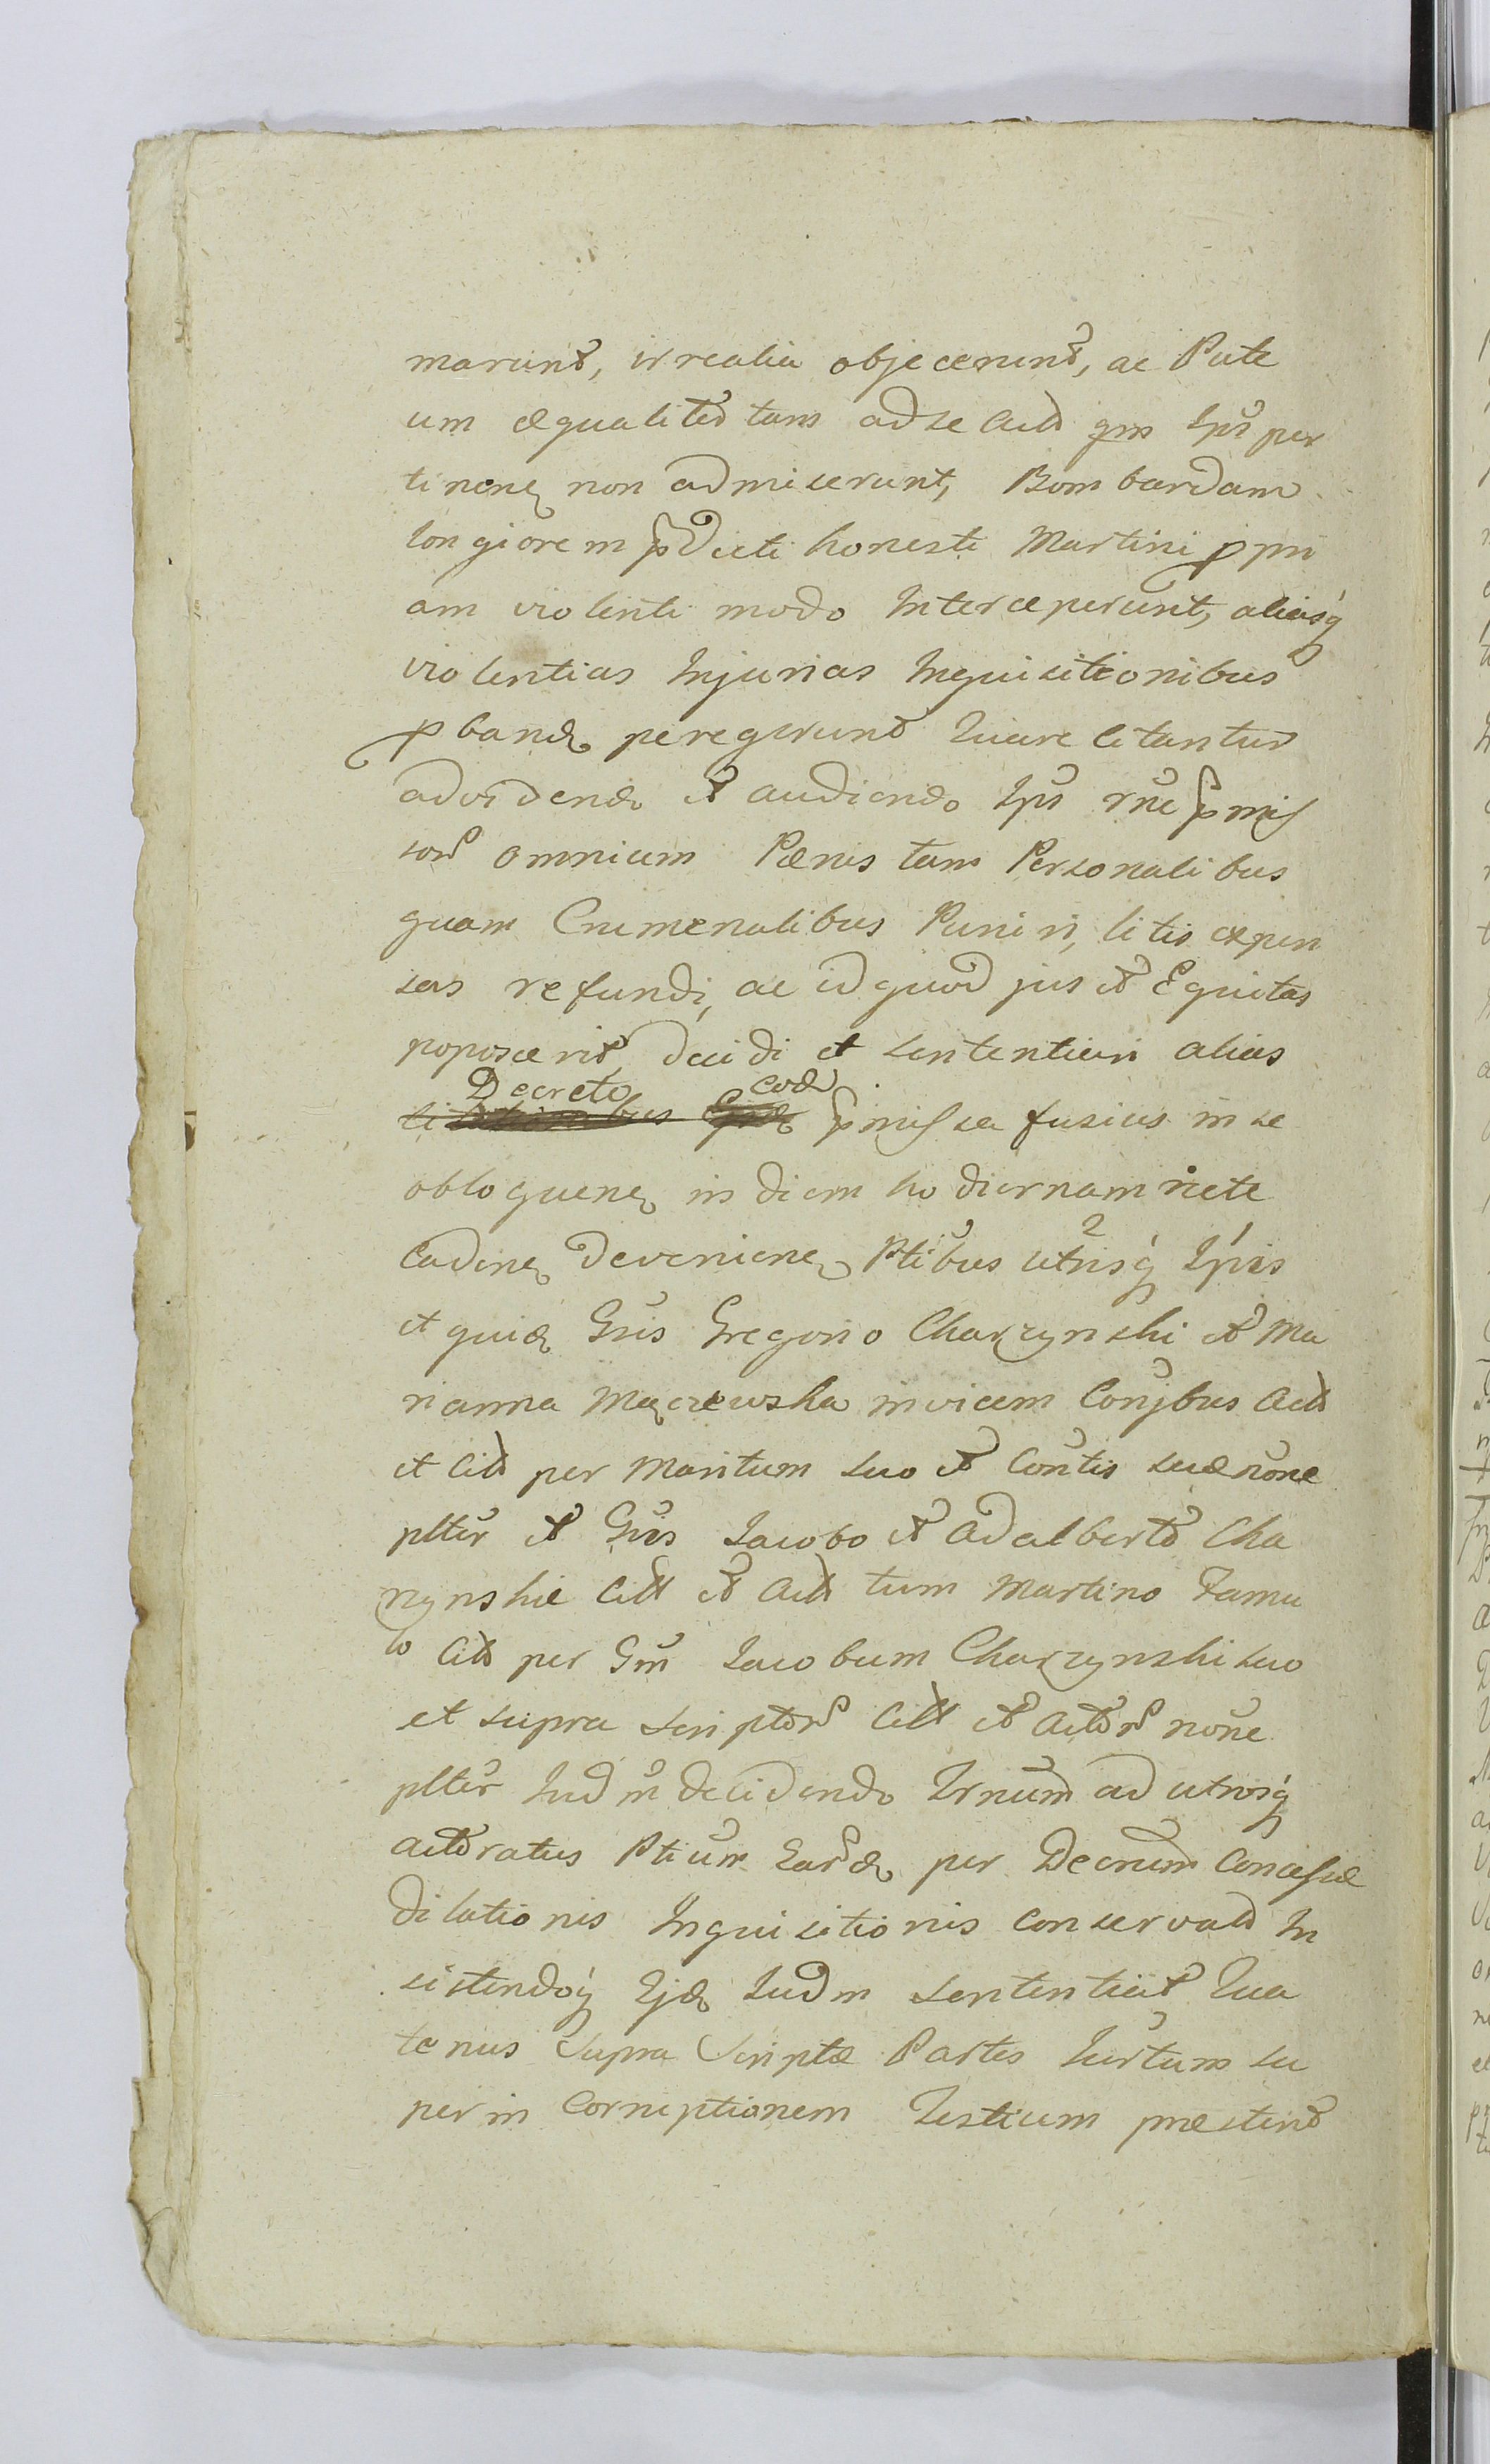 marunt, irrealia objecerunt, ac Pute
um æqualiter tam ad se Actt qm Ips per
tinen non admiserunt, Bombardam
longiorem pdicti honesti Martini ppri
am violenti modo Interceperunt, aliasq
violentias Injurias Inquisitionibus
pband peregerunt Quare citantur
ad vidend et audiendo Ips rne pmis
sor omnium Pænis tam Personalibus
quam Crumenalibus Puniri, litis expen
sas refundi, ac id quod jus et Equitas
poposcerit decidi et sententiari alias
Decreto eod
pmissa fusius in se
obloquen in diem hodiernam riete
caden devenien Ptibus utrisq Ipsis
et quid Gsis Gregorio Charzynski et Ma
rianna Mączewska invicem Conjbus Actt
et Citt per Maritum suo et Contis suæ none
plter et Gsis Jacobo et Adalberto Cha
rzynskie Citt et Actt tum Martino Famu
lo Citt per Gm Jacobum Charzynski suo
et supra scriptor Citt et Actor none
plter Judm decidendo Trnum ad utrosq
actoratus Ptium Eard per Decrum Concessæ
dilationis Inquisitionis conservatt In
sistendoq Ejd Judm sententiat Qua
tenus Supra Scriptæ Partes Jurtum su
per in Corruptionem Testium præstent